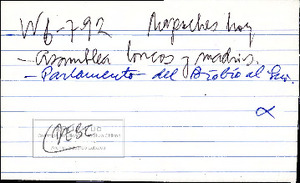 W6-7-92 Mapuches hoy
- Asamblea loncos y madris.
- Parlamento del Biobío al Sur.
α
DESC